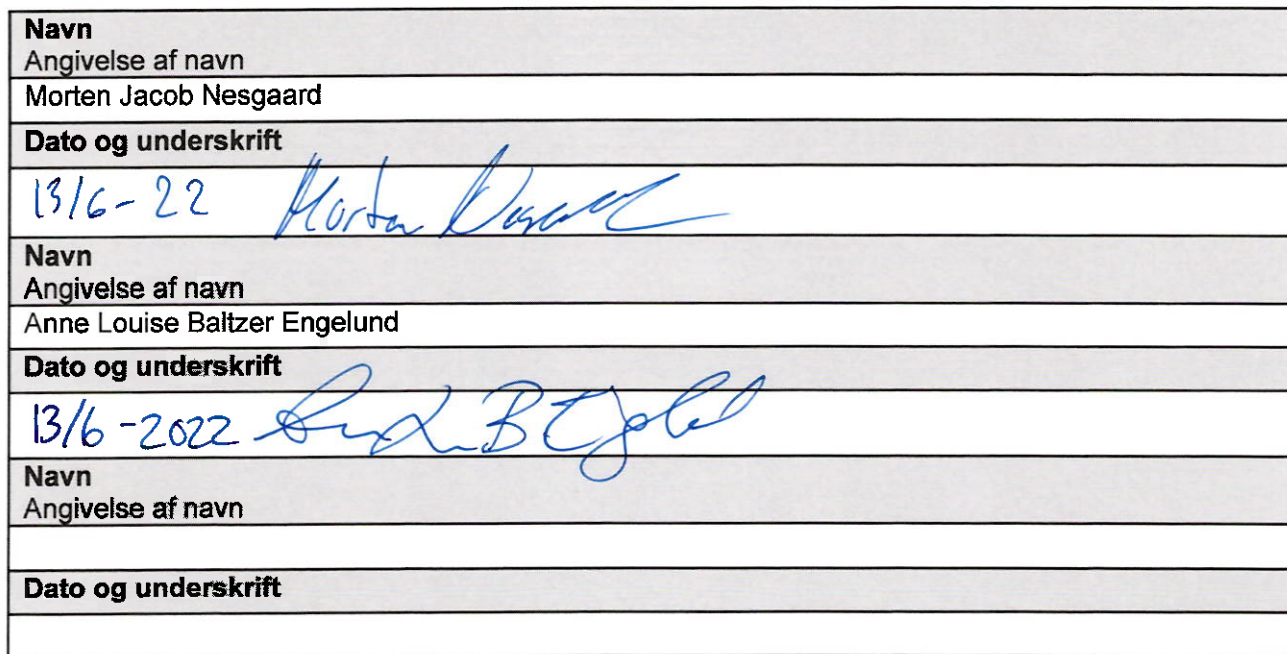 Navn
Angivelse af navn
Morten Jacob Nesgaard
Dato og underskrift
13/6-22 Morten
Navn
Angivelse af navn
Anne Louise Baltzer Engelund
Dato og underskrift
13/6-2022
Navn
Angivelse af navn
Dato og underskrift